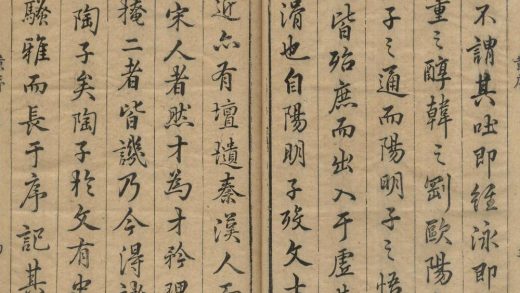 不謂其咄即經泳即
之醇韓之剛歐陽
子之通而陽明子之悟
皆殆庶而出入于虛
滑也自陽明子歿文士
近亦有壇壝秦漢人而
宋人者然才為才矜理
掩二者皆譏乃今得諸
陶子矣陶子於文有史
騷雅而長于序記其